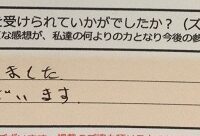 を受けられていかがでしたか？（ズ
な感想が、私達の何よりの力となり今後の参
ました
ざいます。